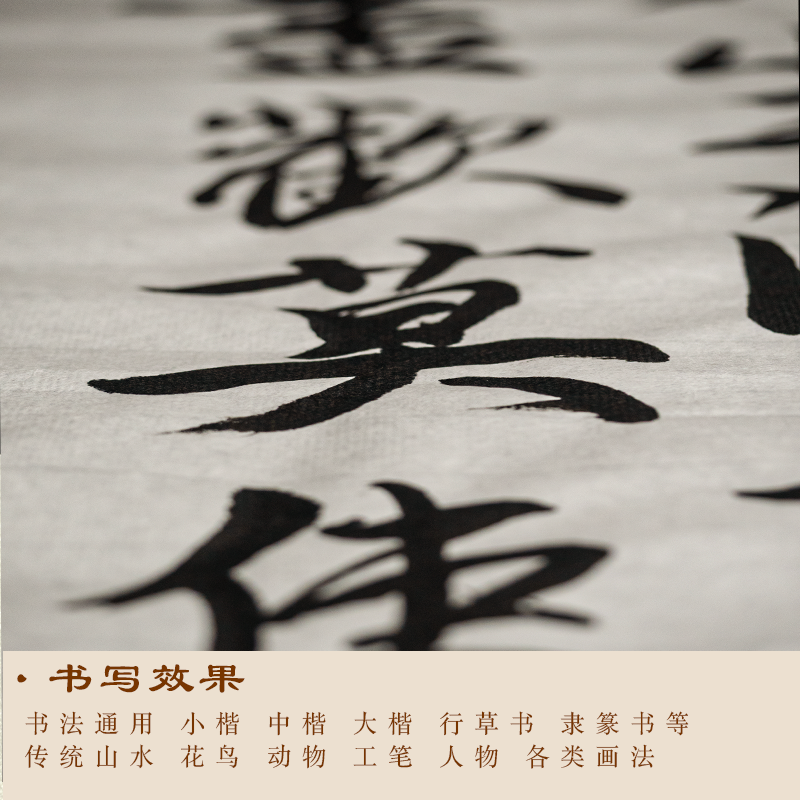 歡莫使
· 书写效果
书法通用 小楷 中楷 大楷 行草书 隶篆书等
传统山水 花鸟 动物 工笔 人物 各类画法